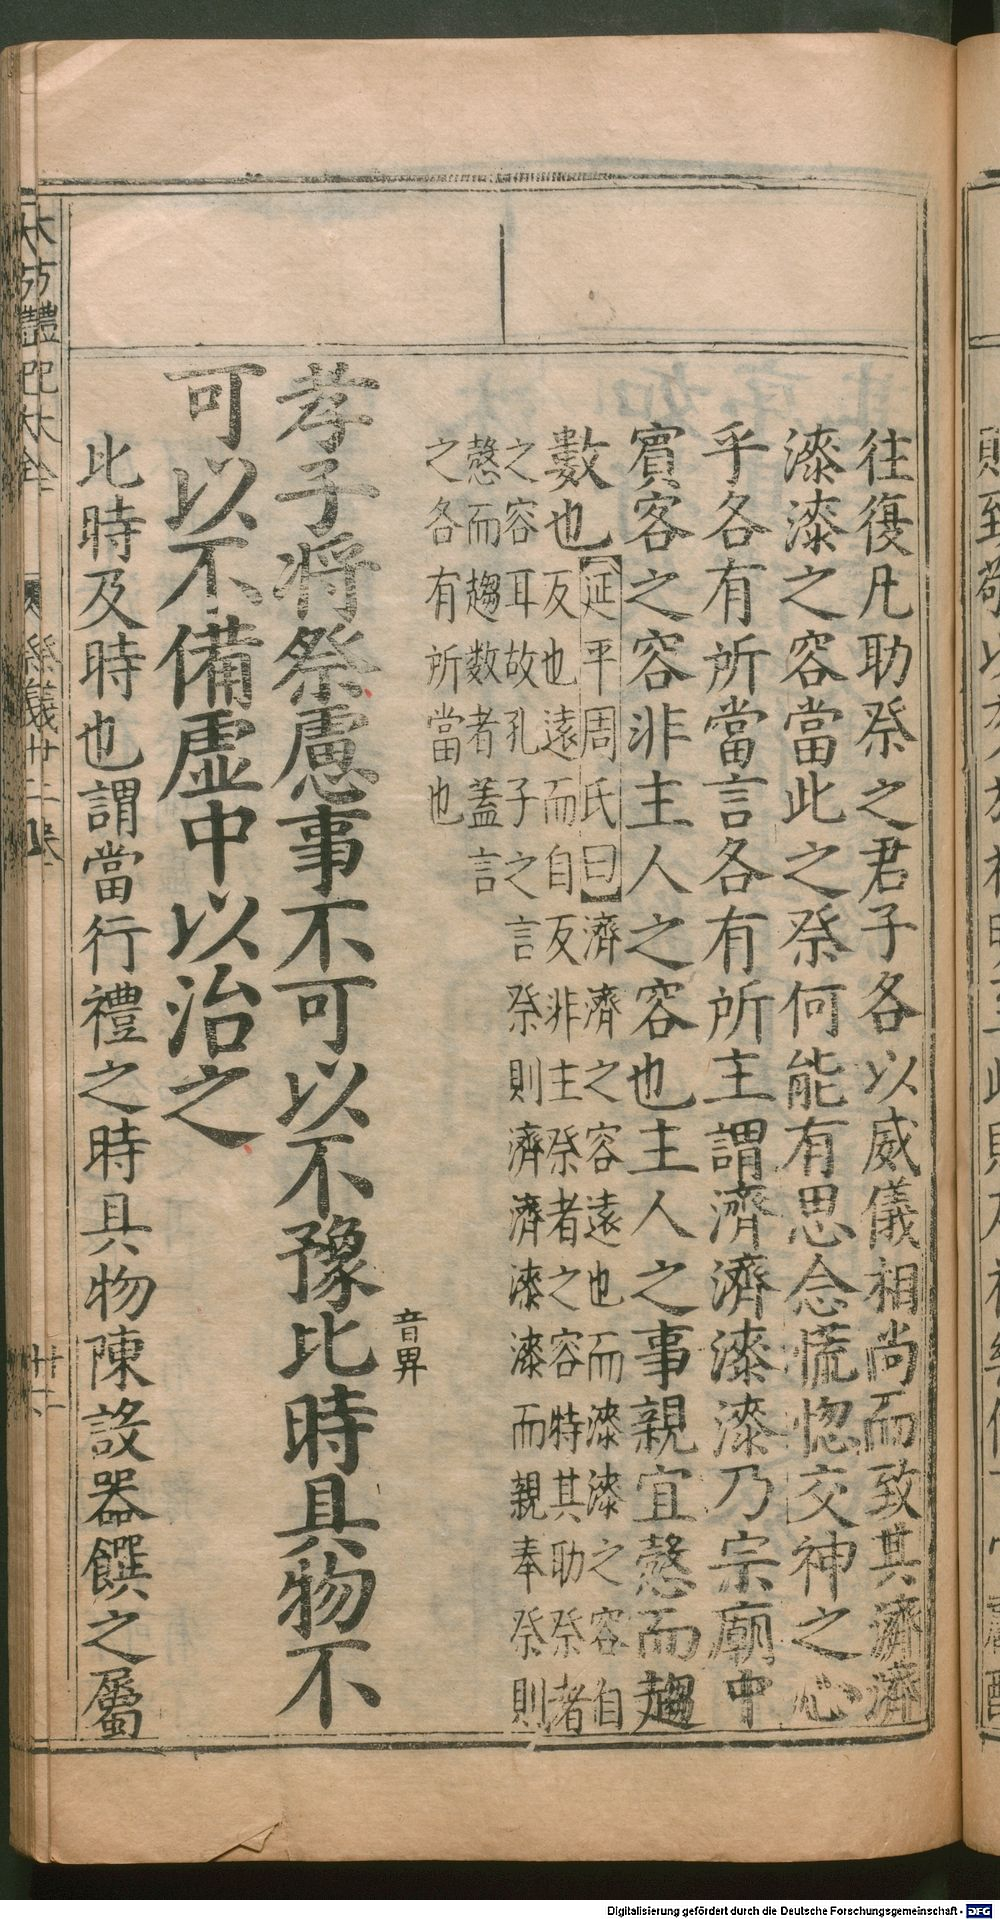 往復凡助祭之君子各以威儀相尚而致其濟濟
漆漆之容當此之祭何能有思念慌惚交神之心
乎各有所當言各有所主謂濟濟漆漆乃宗廟中
賓客之容非主人之容也主人之事親宜慤而趨
數也【延平周氏曰】濟濟之容遠也而漆漆之容自
反也遠而自反非主祭者之容特其助祭者
之容耳故孔子之言祭則濟濟漆漆而親奉祭則
慤而趨数者蓋言
之各有所當也
孝子将祭慮事不可以不豫比時具物不
音畀
可以不備虛中以治之
比時及時也謂當行禮之時具物陳設器饌之屬
祭義廿二卷
Digitalisierung gefördert durch die Deutsche Forschungsgemeinschaft - DFG